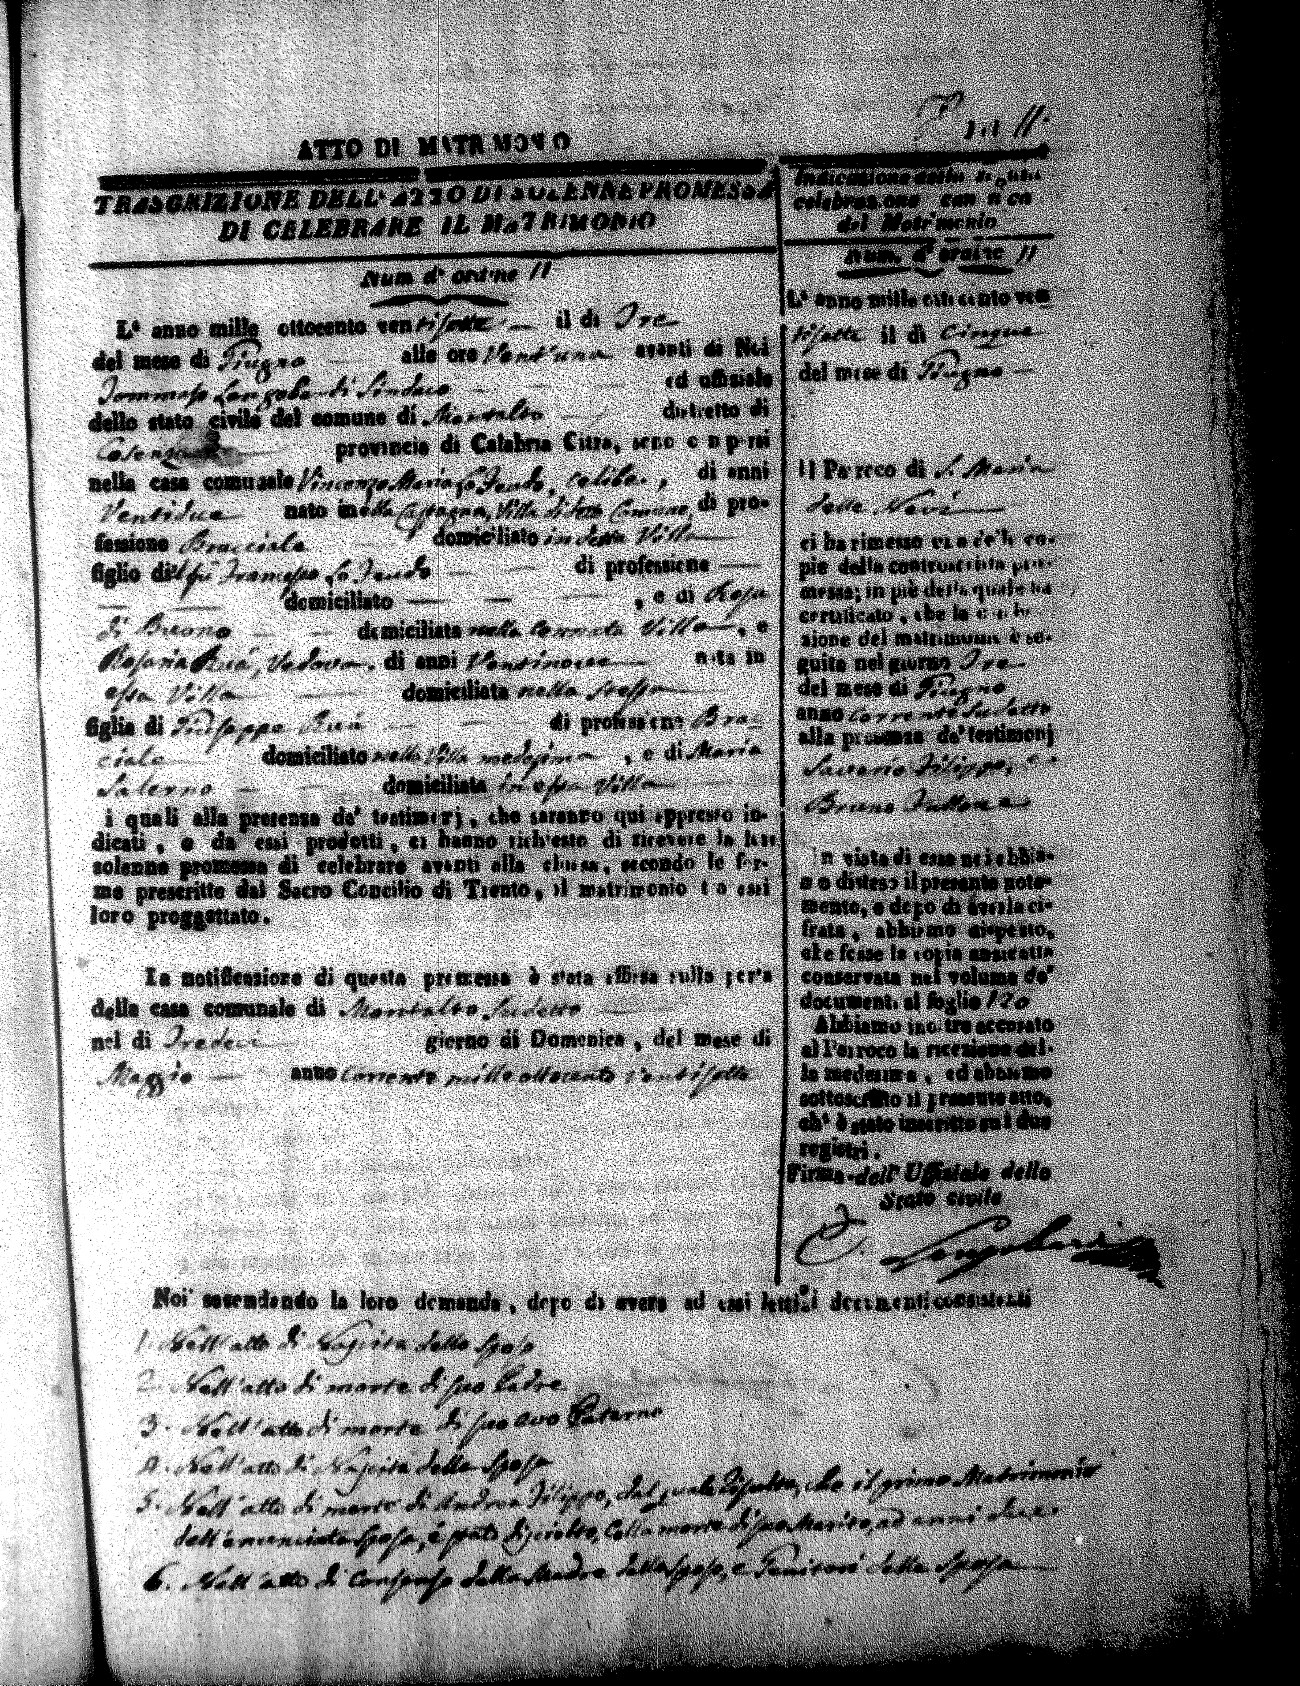 ATTO DI MATRIMONIO
TRASCRIZIONE DELL' ATTO DI SOLENNE PROMESSA
DI CELEBRARE IL MATRIMONIO
Num d' ordine 11
L' anno mille ottocento ventisette il di Tre
del mese di Giugno alle ore Vent'una avanti di Noi
Tommaso Longobardi Sindaco ed uffiziale
dello stato civile del comune di Montalto distretto di
Cosenza provincia di Calabria Citra, sono comparsi
nella casa comunale Vincenzo Maria Lo Feudo, celibe, di anni
Ventidue nato in di pro-
fessione Bracciale domiciliato in detta Villa
figlio del fu Francesco Lo Feudo di professione
domiciliato , e di Rosa
di Bruno domiciliata nella Villa, e
Rosaria Ruà, Vedova, di anni Ventinove nata in
essa Villa domiciliata nella stessa
figlia di Giuseppe Ruà di professione Brac-
ciale domiciliato nella Villa medesima , e di Maria
Salerno domiciliata in essa Villa
i quali alla presenza de' testimonj, che saranno qui appresso in-
dicati, e da essi prodotti, ci hanno richiesto di ricevere la loro
solenne promessa di celebrare avanti alla chiesa, secondo le for-
me prescritte dal Sacro Concilio di Trento, il matrimonio tra essi
loro proggettato.
La notificazione di questa promessa è stata affissa sulla porta
della casa comunale di Montalto sudetto
nel di Tredeci giorno di Domenica, del mese di
Maggio anno corrente mille ottocento ventisette
Num. d' ordine 11
L' anno mille ottocento ven
tisette il di Cinque
del mese di Giugno
Il Parroco di S. Maria
della Neve
ci ha rimesso una delle co-
pie della controscritta pro-
messa; in piè della quale ha
certificato, che la celebra-
zione del matrimonio è se-
guita nel giorno Tre
del mese di Giugno
anno corrente sudetto
alla presenza de' testimonj
Saverio Filippo, e
Bruno
In vista di essa noi abbia-
mo disteso il presente nota-
mento, e dopo di averla ci-
frata, abbiamo disposto,
che fosse la copia anzidetta
conservata nel volume de'
documenti al foglio 120
Abbiamo inoltre accusato
al Parroco la ricezione del-
la medesima, ed abbiamo
sottoscritto il presente atto,
ch' è stato inscritto sui due
registri.
Firma dell' Uffiziale dello
Stato civile
T. Longobardi
Noi secondando la loro domanda, dopo di avere ad essi letti i documenti consistenti
1. Nell'atto di Nascita dello sposo
2. Nell'atto di morte di suo Padre
3. Nell'atto di morte di suo avo Paterno
4. Nell'atto di Nascita della Sposa
5. Nell'atto di morte di Andrea Filippo, dal quale risulta, che il primo Matrimonio
dell'enunciata sposa, è stato disciolto, colla morte di suo Marito, ad anni due.
6. Nell'atto di consenso della Madre dello sposo, e Genitori della Sposa